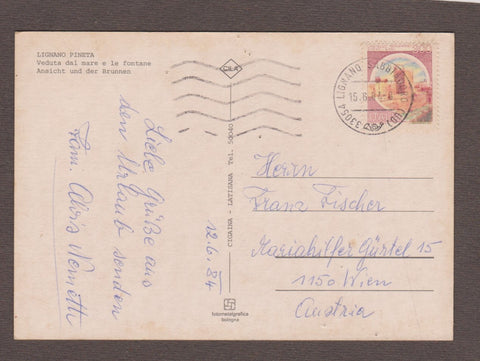 LIGNANO PINETA
Veduta dal mare e le fontane
Ansicht und der Brunnen
Liebe Grüße aus
dem Urlaub senden
Fam. Alois
12.6.84
CIGAINA - LATISANA Tel. 50043
fotometalgrafica
bologna
33054 LIGNANO
(UD)
15.6.84
Herrn
Franz Fischer
Mariahilfer Gürtel 15
1150 Wien
Austria